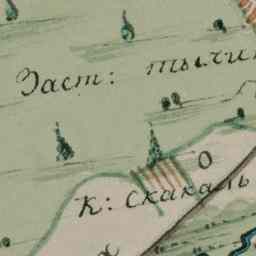 Заст: тычи
К: Скакаль